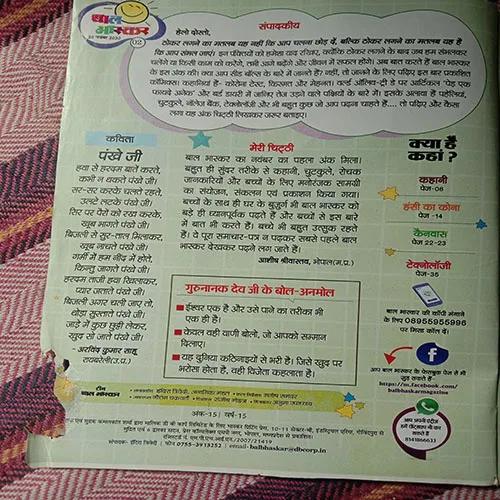 बाल
भास्कर
02
संपादकीय
हेलो दोस्तो,
ठोकर लगने का मतलब यह नहीं कि आप चलना छोड़ दें, बल्कि ठोकर लगने का मतलब यह है
कि आप संभल जाएं। इन पंक्तियों को हमेशा याद रखिए, क्योंकि ठोकर लगने के बाद जब हम संभलकर
चलेंगे या किसी काम को करेंगे, तभी आगे बढ़ेंगे और जीवन में सफल होंगे। अब बात करते हैं बाल भास्कर
के इस अंक की। क्या आप सीड बॉल्स के बारे में जानते हैं? नहीं, तो जानने के लिए पढ़िए इस बार प्रकाशित
कॉमिक्स। कहानियां हैं- कोरोना टेस्ट, किस्मत और मेहनत। वर्ल्ड ऑलिव-ट्री डे पर आर्टिकल 'पेड़ एक
फायदे अनेक' और बर्ड डायरी में जानिए तेज उड़ने वाले पक्षियों के बारे में। इसके अलावा हैं पहेलियां,
चुटकुले, नॉलेज बैंक, टेक्नोलॉजी और भी बहुत कुछ जो आप पढ़ना चाहते हैं.... तो पढ़िए और कैसा
लगा यह अंक चिट्ठी लिखकर जरूर बताइए।
कविता
पंखे जी
हवा से हरदम बातें करते,
कभी न थकते पंखे जी।
सर-सर करके चलते रहते,
उलटे लटके पंखे जी।
सिर पर पैरों को रख करके,
खूब भागते पंखे जी।
बिजली से सुर-ताल मिलाकर,
खूब नाचते पंखे जी।
गर्मी में हम नींद में होते,
किन्तु जागते पंखे जी।
हरदम ताजी हवा खिलाकर,
प्यार जताते पंखे जी।
बिजली अगर चली जाए तो,
थोड़ा सुस्ताते पंखे जी।
जाड़े में कुछ छुट्टी लेकर,
खूब सो जाते पंखे जी।
- अरविंद कुमार साहू
रायबरेली(उ.प्र.)
मेरी चिट्‌ठी
बाल भास्कर का नवंबर का पहला अंक मिला।
बहुत ही सुंदर तरीके से कहानी, चुटकुले, रोचक
जानकारियों और बच्चों के लिए मनोरंजक सामग्री
का संयोजन, संकलन एवं प्रकाशन किया गया।
बच्चों के साथ ही घर के बुजुर्ग भी बाल भास्कर को
बड़े ही ध्यानपूर्वक पढ़ते हैं और बच्चों से इस बारे
में बात भी करते हैं। बच्चे भी बहुत उत्सुक रहते
हैं। वे पूरा समाचार-पत्र न पढ़कर सबसे पहले बाल
भास्कर देखकर पढ़ने लग जाते हैं।
आशीष श्रीवास्तव, भोपाल(म.प्र.)
गुरुनानक देव जी के बोल-अनमोल
ईश्वर एक है और उसे पाने का तरीका भी
एक ही है।
केवल वही वाणी बोलो, जो आपको सम्मान
दिलाए।
यह दुनिया कठिनाइयों से भरी है। जिसे खुद पर
भरोसा होता है, वही विजेता कहलाता है।
क्या है
कहां?
कहानी
पेज-06
हंसी का कोना
पेज -14
कैनवास
पेज 22-23
टेक्नोलॉजी
पेज-35
बाल भास्कर की कॉपी मंगाने
के लिए 08955955996
पर मिस्ड कॉल दें।
आप बाल भास्कर के फेसबुक पेज से भी
जुड़ सकते हैं-
https://m.facebook.com/
balbhaskarmagazine
टीम
बाल भास्कर
अंक-15 | वर्ष-15
email-balbhaskar@dbcorp.in